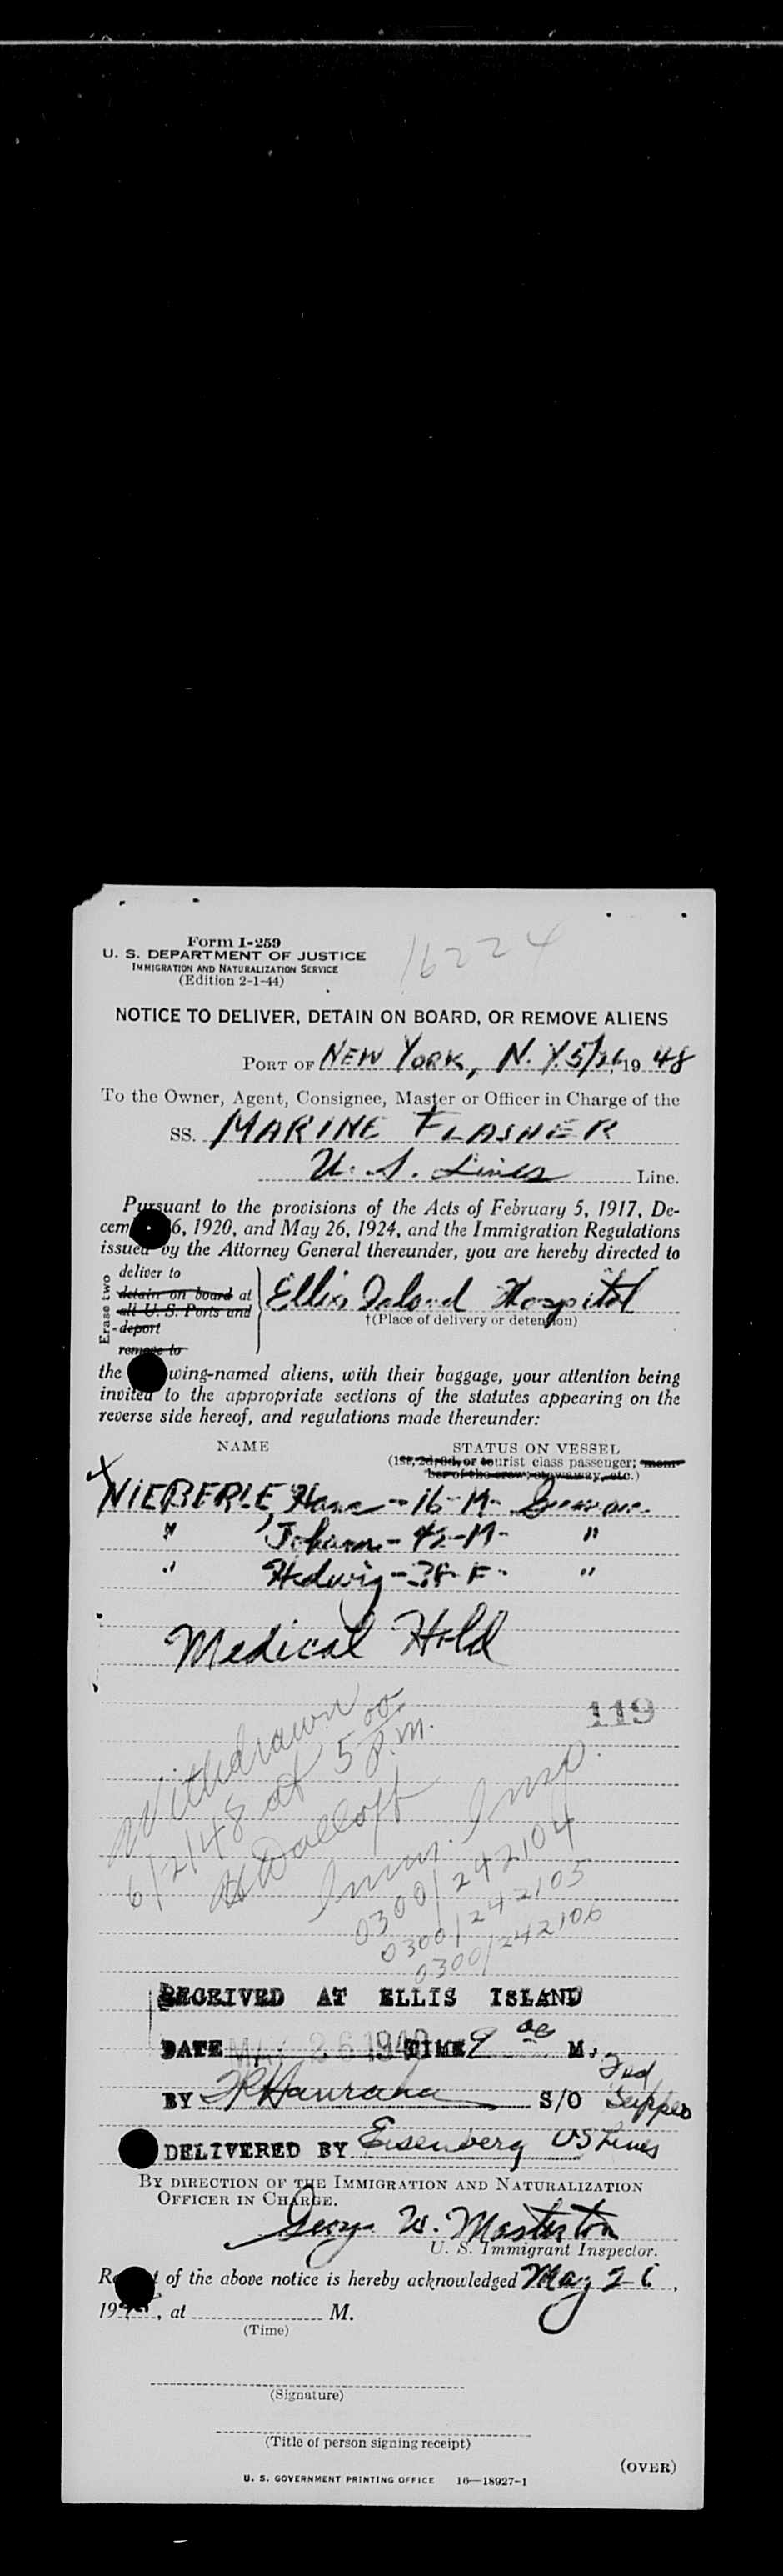 Form I-259
16224
U. S. DEPARTMENT OF JUSTICE
IMMIGRATION AND NATURALIZATION SERVICE
(Edition 2-1-44)
NOTICE TO DELIVER, DETAIN ON BOARD, OR REMOVE ALIENS
PORT OF NEW YORK, N. Y. 5/26, 19 48
To the Owner, Agent, Consignee, Master or Officer in Charge of the
SS. MARINE FLASHER
U. S. Lines Line.
Pursuant to the provisions of the Acts of February 5, 1917, De-
cem 6, 1920, and May 26, 1924, and the Immigration Regulations
issued by the Attorney General thereunder, you are hereby directed to
Erase two
deliver to
detain on board at
all U. S. Ports and
deport
remove to
Ellis Island Hospital
†(Place of delivery or detention)
the wing-named aliens, with their baggage, your attention being
invited to the appropriate sections of the statutes appearing on the
reverse side hereof, and regulations made thereunder:
NAME STATUS ON VESSEL
(1st, 2d, 3d, or tourist class passenger; mem-
ber of the crew; stowaway, etc.)
X
NIEBERLE, Hans - 16 - M - German
" Johann - 42 - M - "
" Hedwig - 38 - F - "
Medical Hold
119
Withdrawn
6/2/48 at 5 00 P.M.
Imm. Insp.
0300/242104
0300/242105
0300/242106
RECEIVED AT ELLIS ISLAND
DATE MAY 26 1948 TIME 9 M.
BY S/O
DELIVERED BY Eisenberg US Lines
BY DIRECTION OF THE IMMIGRATION AND NATURALIZATION
OFFICER IN CHARGE.
George W. Masterton
U. S. Immigrant Inspector.
R t of the above notice is hereby acknowledged May 26,
1948, at M.
(Time)
(Signature)
(Title of person signing receipt)
(OVER)
U. S. GOVERNMENT PRINTING OFFICE 16—18927-1